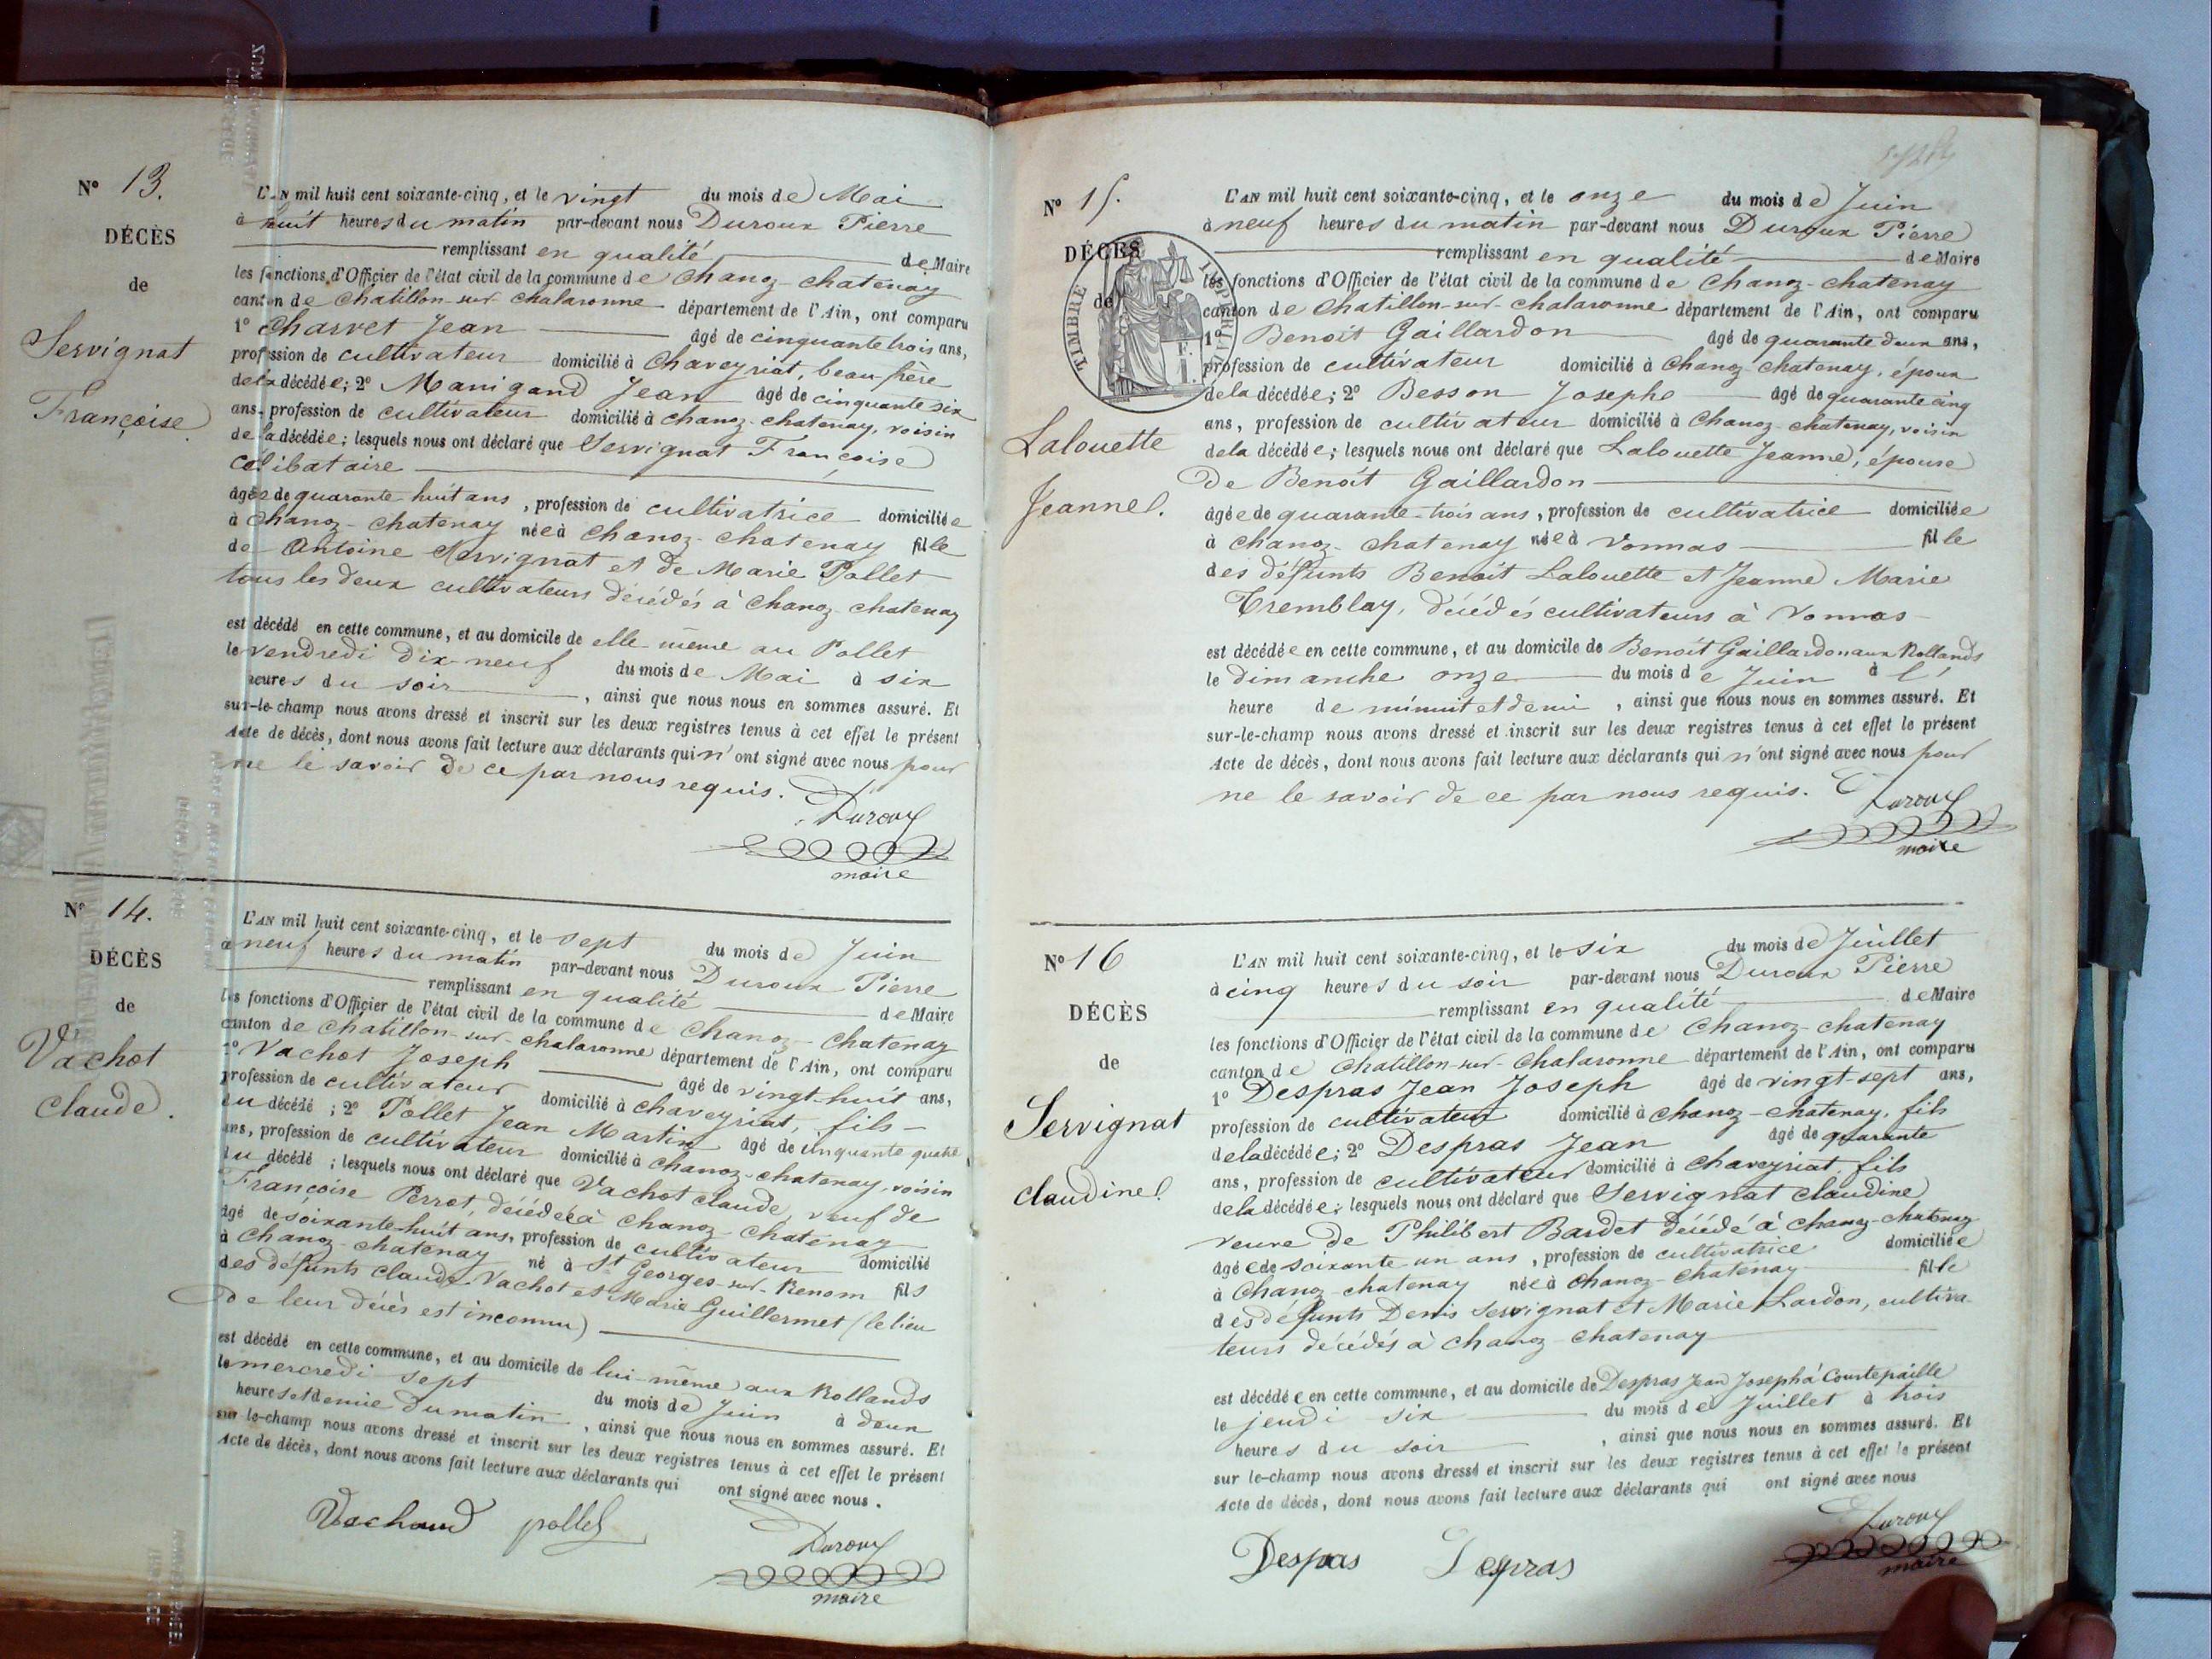 N° 13.
DÉCÈS
de
Servignat
Françoise
L'AN mil huit cent soixante-cinq, et le vingt du mois de Mai
à huit heures du matin par-devant nous Duroux Pierre
remplissant en qualité de Maire
les fonctions d'Officier de l'état civil de la commune de Chanoz-chatenay
canton de Chatillon-sur-chalaronne département de l'Ain, ont comparu
1° Charvet Jean âgé de cinquante trois ans,
profession de cultivateur domicilié à Chaveyriat, beau-frère
de la décédée; 2° Manigand Jean âgé de cinquante six
ans, profession de cultivateur domicilié à chanoz-chatenay, voisin
de la décédée; lesquels nous ont déclaré que Servignat Françoise
célibataire
âgée de quarante-huit ans, profession de cultivatrice domiciliée
à Chanoz-chatenay née à chanoz-chatenay fille
de Antoine Servignat et de Marie Pollet
tous les deux cultivateurs décédés à Chanoz-chatenay
est décédé en cette commune, et au domicile de elle-même au Pollet
le vendredi dix-neuf du mois de Mai à six
heures du soir, ainsi que nous nous en sommes assuré. Et
sur-le-champ nous avons dressé et inscrit sur les deux registres tenus à cet effet le présent
Acte de décès, dont nous avons fait lecture aux déclarants qui n'ont signé avec nous pour
ne le savoir de ce par nous requis.
Duroux
maire
N° 14.
DÉCÈS
de
Vachot
claude.
L'AN mil huit cent soixante-cinq, et le sept du mois de Juin
à neuf heures du matin par-devant nous Duroux Pierre
remplissant en qualité de Maire
les fonctions d'Officier de l'état civil de la commune de Chanoz-chatenay
canton de Chatillon-sur-chalaronne département de l'Ain, ont comparu
1° Vachot Joseph âgé de vingt-huit ans,
profession de cultivateur domicilié à chaveyriat, fils
du décédé; 2° Pollet Jean Martin âgé de cinquante quatre
ans, profession de cultivateur domicilié à chanoz-chatenay, voisin
du décédé; lesquels nous ont déclaré que Vachot claude, veuf de
Françoise Perret, décédée à chanoz-chatenay
âgé de soixante-huit ans, profession de cultivateur domicilié
à Chanoz-chatenay né à St Georges-sur-Renom fils
des défunts claude Vachot et Marie Guillermet (le lieu
de leur décès est inconnu)
est décédé en cette commune, et au domicile de lui-même aux Rollands
le mercredi sept du mois de Juin à deux
heures et demie du matin, ainsi que nous nous en sommes assuré. Et
sur le-champ nous avons dressé et inscrit sur les deux registres tenus à cet effet le présent
Acte de décès, dont nous avons fait lecture aux déclarants qui ont signé avec nous.
Vachaud pollet
Duroux
maire
N° 15.
DÉCÈS
de
TIMBRE IMPERIAL
Lalouette
Jeanne.
L'AN mil huit cent soixante-cinq, et le onze du mois de Juin
à neuf heures du matin par-devant nous Duroux Pierre
remplissant en qualité de Maire
les fonctions d'Officier de l'état civil de la commune de Chanoz-chatenay
canton de Chatillon-sur-chalaronne département de l'Ain, ont comparu
1° Benoît Gaillardon âgé de quarante deux ans,
profession de cultivateur domicilié à Chanoz-chatenay, époux
de la décédée; 2° Besson Josephe âgé de quarante cinq
ans, profession de cultivateur domicilié à Chanoz-chatenay, voisin
de la décédée; lesquels nous ont déclaré que Lalouette Jeanne, épouse
de Benoît Gaillardon
âgée de quarante-trois ans, profession de cultivatrice domiciliée
à chanoz-chatenay née à Vonnas fille
des défunts Benoît Lalouette et Jeanne Marie
Tremblay, décédés cultivateurs à Vonnas
est décédée en cette commune, et au domicile de Benoît Gaillardon aux Rollands
le dimanche onze du mois de Juin à l'
heure de minuit et demi, ainsi que nous nous en sommes assuré. Et
sur-le-champ nous avons dressé et inscrit sur les deux registres tenus à cet effet le présent
Acte de décès, dont nous avons fait lecture aux déclarants qui n'ont signé avec nous pour
ne le savoir de ce par nous requis.
Duroux
maire
N° 16
DÉCÈS
de
Servignat
claudine.
L'AN mil huit cent soixante-cinq, et le six du mois de Juillet
à cinq heures du soir par-devant nous Duroux Pierre
remplissant en qualité de Maire
les fonctions d'Officier de l'état civil de la commune de Chanoz-chatenay
canton de Chatillon-sur-Chalaronne département de l'Ain, ont comparu
1° Despras Jean Joseph âgé de vingt-sept ans,
profession de cultivateur domicilié à chanoz-chatenay, fils
de la décédée; 2° Despras Jean âgé de quarante
ans, profession de cultivateur domicilié à chaveyriat, fils
de la décédée; lesquels nous ont déclaré que Servignat claudine
veuve de Philibert Bardet décédé à chanoz-chatenay
âgée de soixante un ans, profession de cultivatrice domiciliée
à Chanoz-chatenay née à chanoz-chatenay fille
des défunts Denis Servignat et Marie Lardon, cultiva-
teurs décédés à chanoz-chatenay
est décédée en cette commune, et au domicile de Despras Jean Joseph à Courtepaille
le jeudi six du mois de Juillet à trois
heures du soir, ainsi que nous nous en sommes assuré. Et
sur le-champ nous avons dressé et inscrit sur les deux registres tenus à cet effet le présent
Acte de décès, dont nous avons fait lecture aux déclarants qui ont signé avec nous
Despras Depras
Duroux
maire